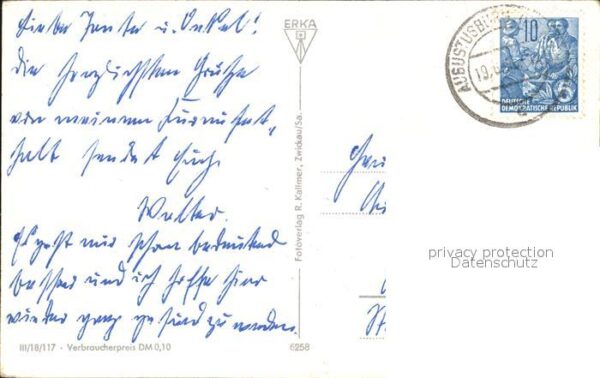 Liebe Tante u. Onkel!
die herzlichsten Grüße
von meinem Kuraufent,
halt sendet Euch
Walter.
Es geht mir schon bedeutend
besser und ich hoffe hier
wieder ganz gesund zu werden.
III/18/117 · Verbraucherpreis DM 0,10
6258
ERKA
Fotoverlag R. Kallmer, Zwickau/Sa.
AUGUSTUSBURG
10
DEUTSCHE
DEMOKRATISCHE REPUBLIK
privacy protection
Datenschutz